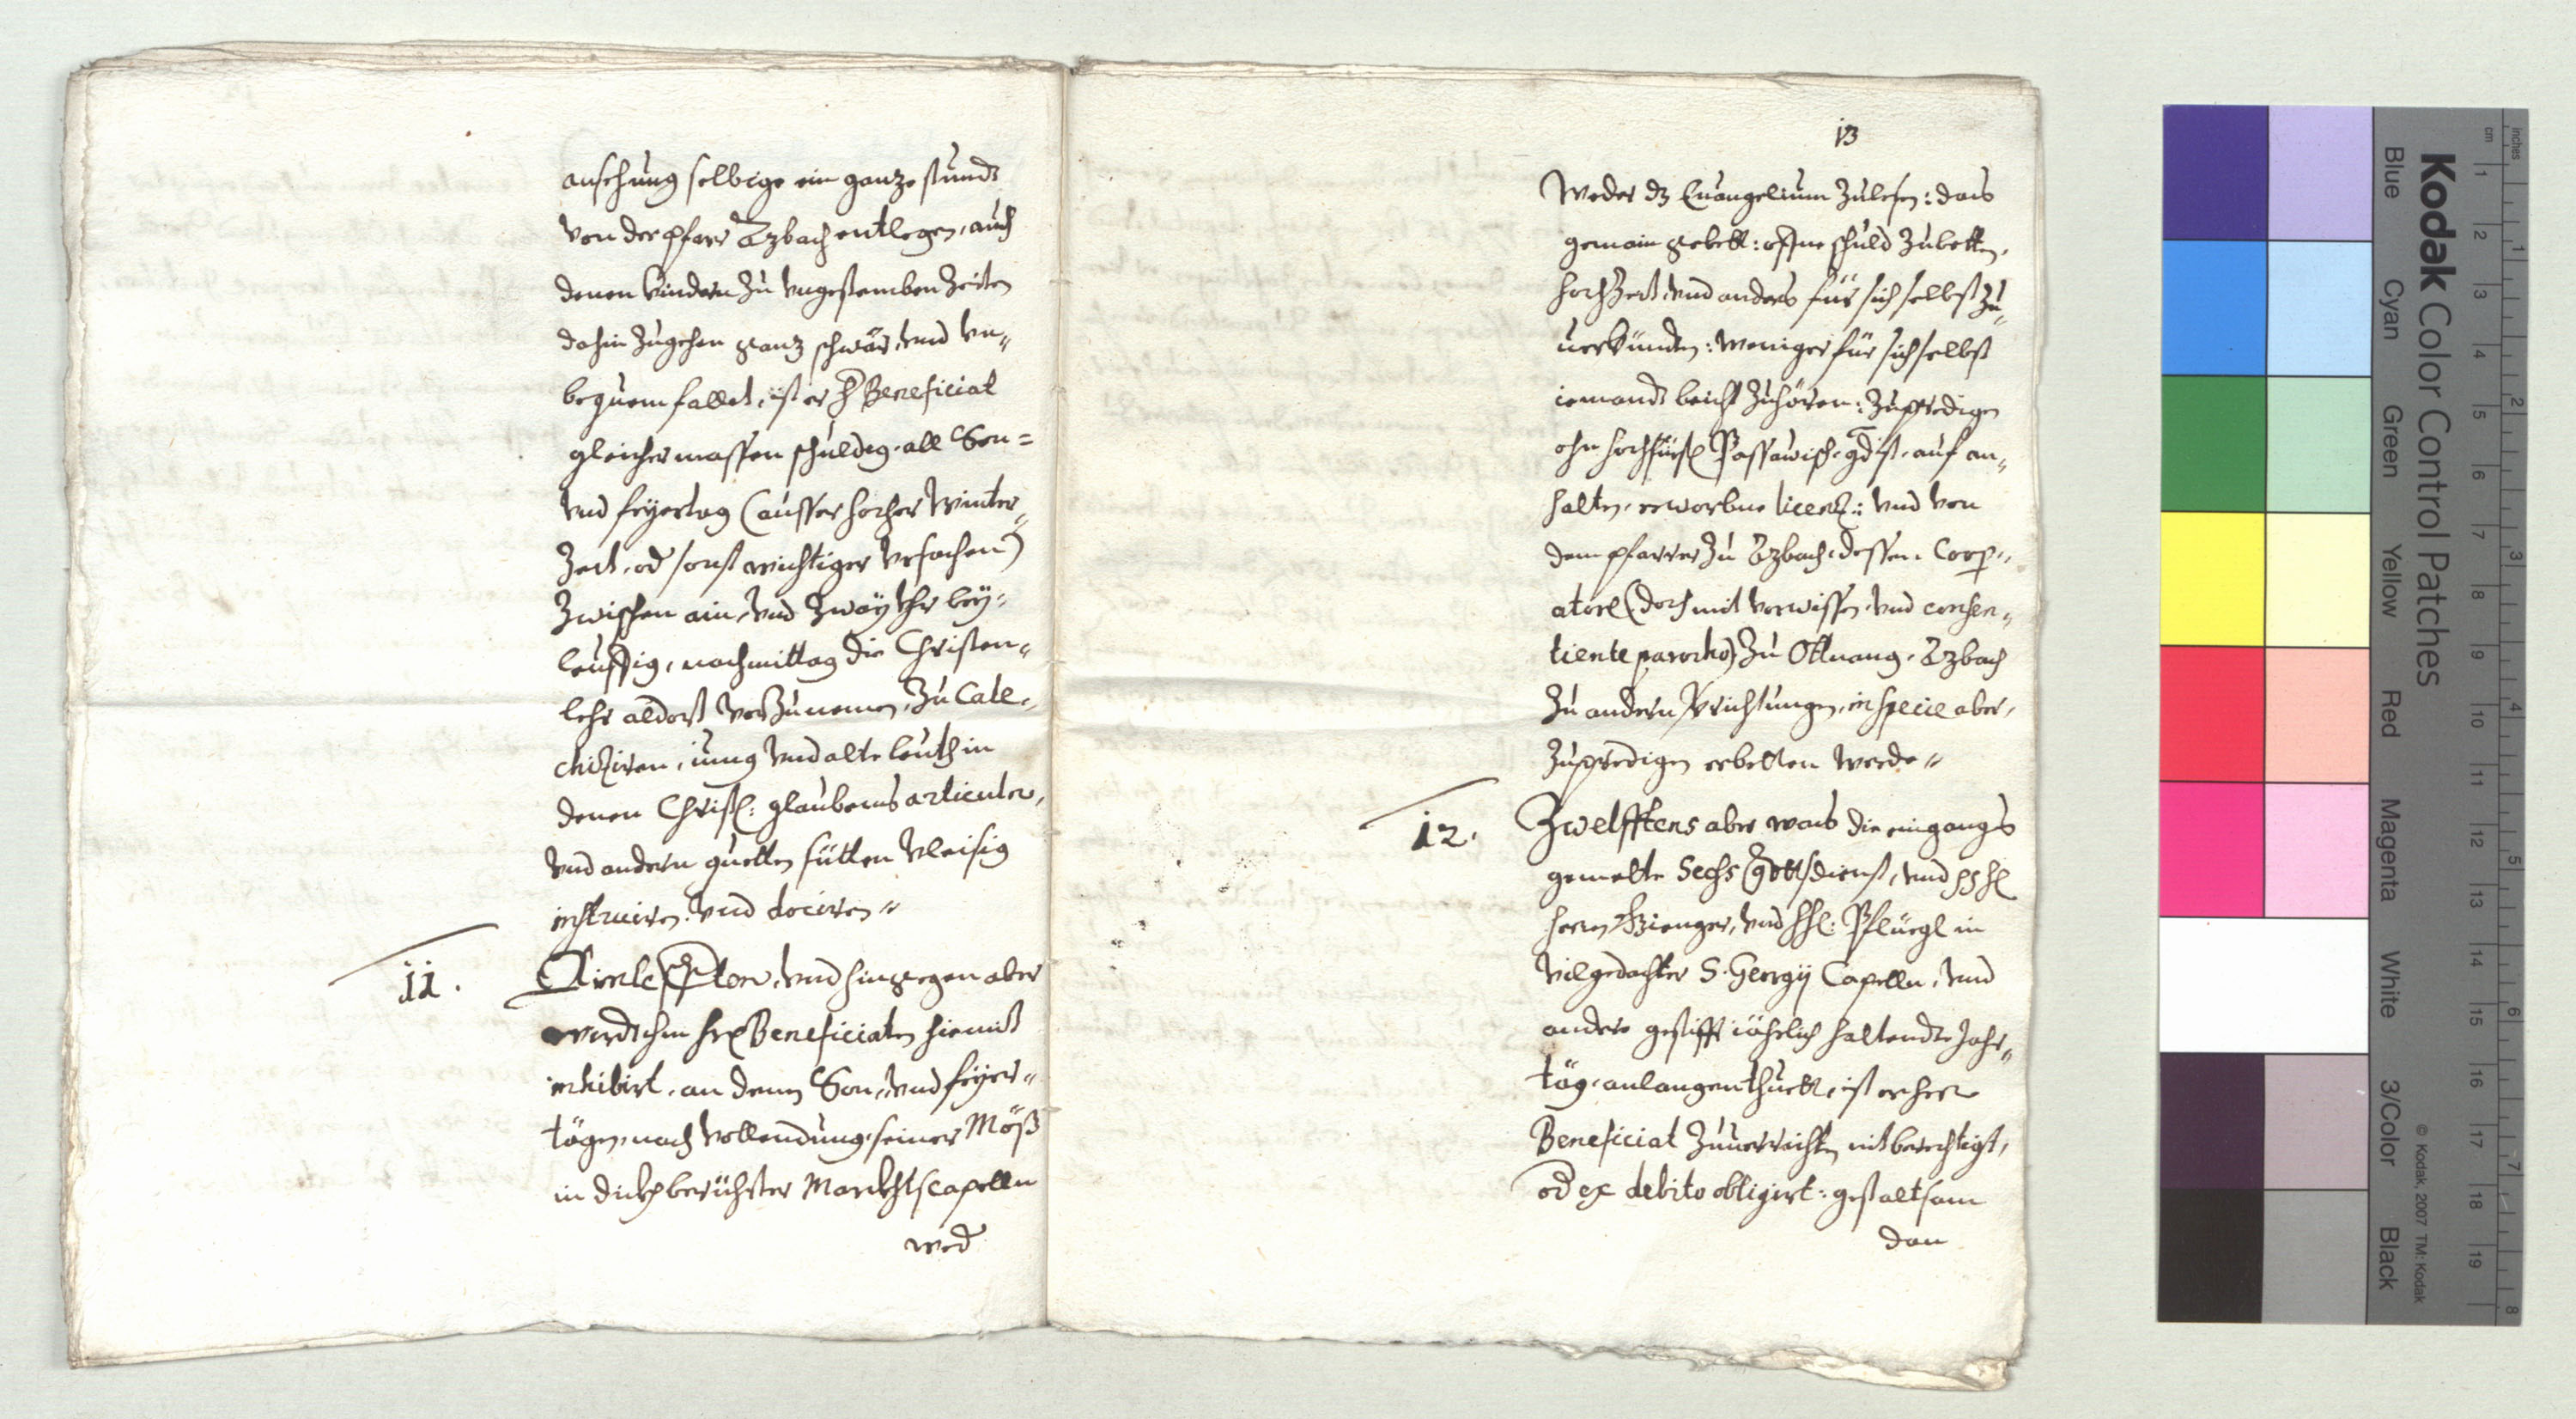 ansehung selbige ein ganze stundt
von der pfarr Azbach entlegen, auch
denen kindern zu ungestemben Zeiten
dahin zugehen ganz schwär, und un„
bequem fallet, ist er H Beneficiat
gleichermassen schuldig, all Son=
und feyertag (ausser hocher Winter„
Zeit, od sonst wichtiger ursachen)
Zwischen ain, und Zway Uhr bey„
leuffig, nachmittag die Christen„
lehr aldort vorzunemen, zu Cate„
chiziren, iung und alte leuth in
denen Christl: glaubens articulen,
und andern guetten sütten vleisig
instruiren, und dociren„
11. Ailfften, und hingegen aber
wirdt ihm Hrn Beneficiaten hiemit
inhibirt, an denen Son, und feyer„
tägen, nach vollendung, seiner Möß
in dickh berührter Marckhts Capellen
wed
13
Weder dz Euangelium Zulesen: das
gemain gebett: offne schuld Zubetten,
hochzeit, und anders für sich selbst zu„
uerkünden: weniger für sich selbst
iemandt beicht Zuhören: Zupredigen
ohn hochfürstl Passawisch gdist, auf an„
halten, erworbne licenz: und von
dem pfarrer Zu Azbach, dessen Coop„
atore (doch mit vorwissen, und consen„
tiente parocho) Zu Ottnang, Azbach
Zu andern verrichtungen, in specie aber,
Zupredigen erbetten werde„
12. Zwelfftens aber was die eingangs
gemelte Sechs Gottsdienst, und
herrn Spienger, und Pflüegl in
vilgedachter S. Georgij Capellen, und
andere gestifft iährlich haltendte Jahr„
täg, anlangen thuett, ist er herr
Beneficiat Zuuerrichten nit berechtigt,
od ex debito obligirt: gestaltsam
dan
Kodak Color Control Patches
Blue Cyan Green Yellow Red Magenta White 3/Color Black
© Kodak, 2007 TM: Kodak
inches 1 2 3 4 5 6 7 8
cm 1 2 3 4 5 6 7 8 9 10 11 12 13 14 15 16 17 18 19